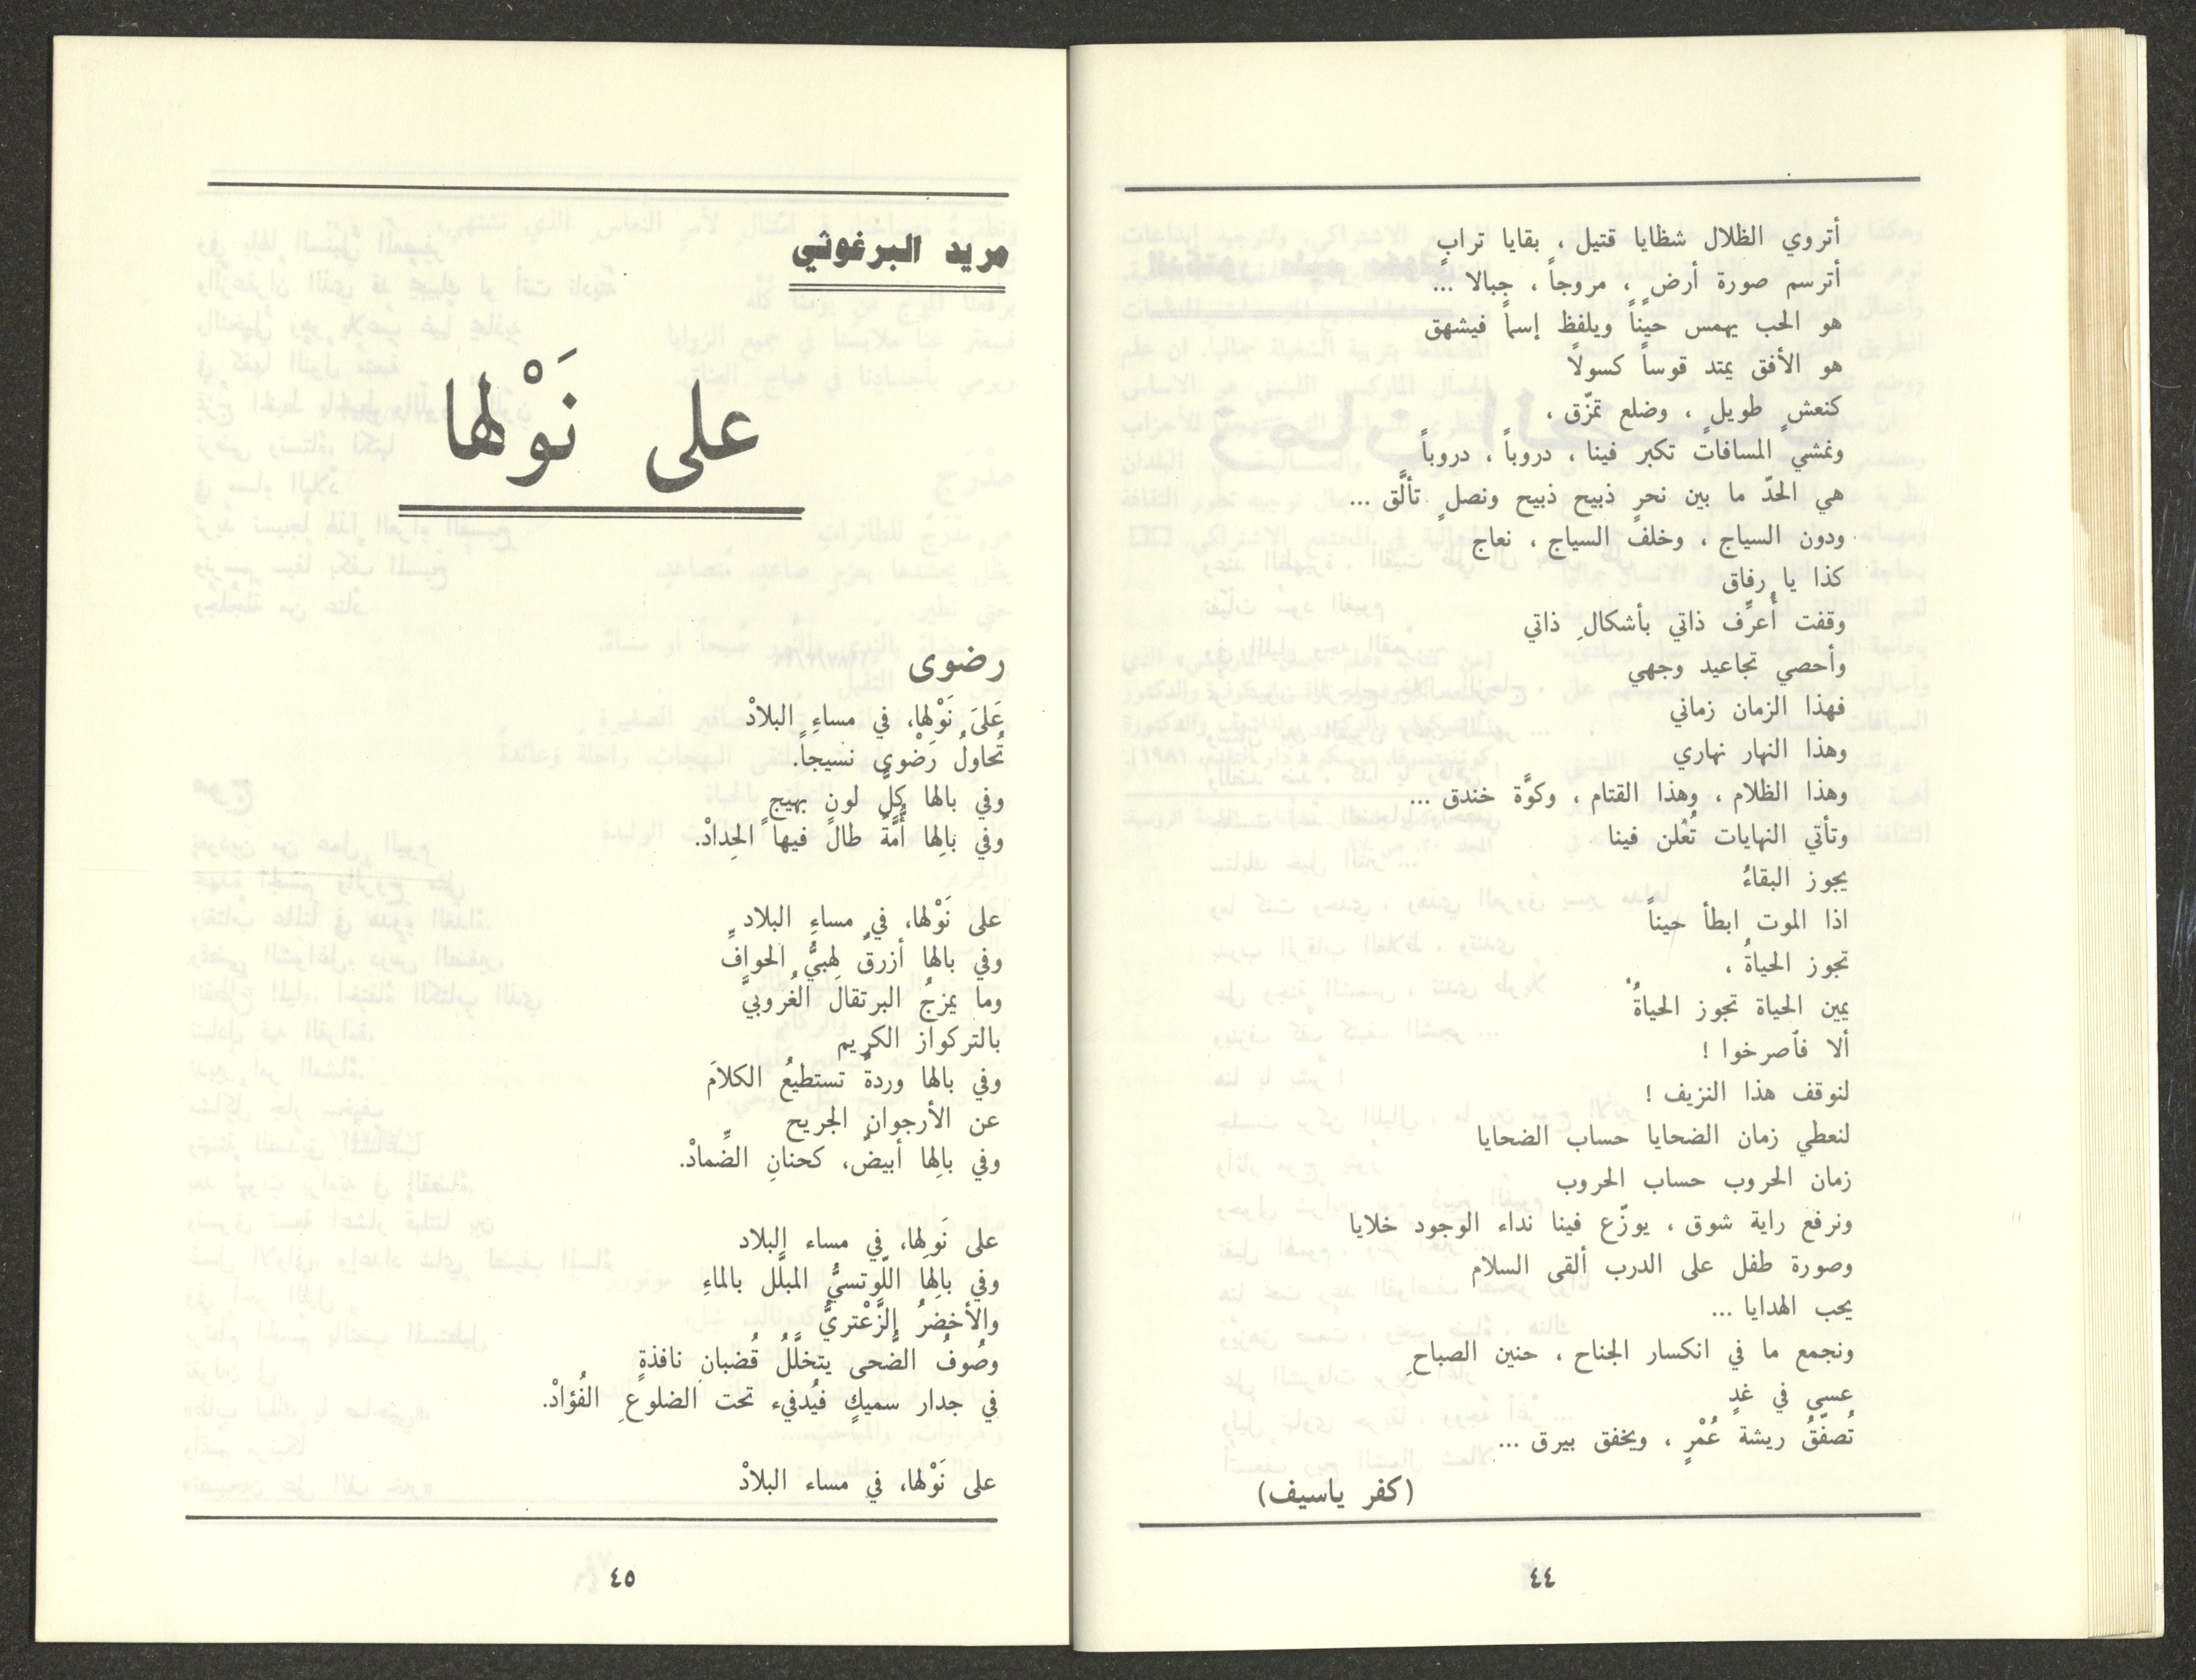 أتروي الظلال شظايا قتيل ، بقايا ترابٍ
أترسم صورة أرضٍ ، مروجاً ، جبالا ...
هو الحب يهمس حيناً ويلفظ إسماً فيشهق
هو الأفق يمتد قوساً كسولاً
كنعشٍ طويلٍ ، وضلع تمزّق ،
ونمشي المسافاتُ تكبر فينا ، دروباً ، دروباً
هي الحدّ ما بين نحرٍ ذبيح ذبيح ونصلٍ تألَّق ...
ودون السياج ، وخلف السياج ، نعاج
كذا يا رفاق
وقفت أُعرِّف ذاتي بأشكالِ ذاتي
وأحصي تجاعيد وجهي
فهذا الزمان زماني
وهذا النهار نهاري
وهذا الظلام ، وهذا القتام ، وكوَّة خندق ...
وتأتي النهايات تُعْلن فينا
يجوز البقاءُ
اذا الموت ابطأ حيناً
تجوز الحياةُ ،
يمين الحياة تجوز الحياةُ
ألا فٱصرخوا !
لنوقف هذا النزيف !
لنعطي زمان الضحايا حساب الضحايا
زمان الحروب حساب الحروب
ونرفع راية شوق ، يوزّع فينا نداء الوجود خلايا
وصورة طفل على الدرب ألقى السلام
يحب الهدايا ...
ونجمع ما في انكسار الجناح ، حنين الصباحِ
عسى في غدٍ
تُصفّقُ ريشة عُمْرٍ ، ويخفق بيرق ...
(كفر ياسيف)
٤٤
مريد البرغوثي
على نَوْلها
رضوى
عَلىَ نَوْلِها، في مساءِ البلادْ
تُحاولُ رَضْوى نسيجاً.
وفي بالها كلُّ لونٍ بهيجٍ
وفي بالِها أُمَّةٌ طالَ فيها الحِدادْ.
على نَوْلها، في مساءِ البلاد
وفي بالها أزرقٌ لهبيُّ الحوافِّ
وما يمزجُ البرتقالَ الغُروبيَّ
بالتركواز الكريم
وفي بالها وردةٌ تستطيعُ الكلاَمَ
عن الأرجوانِ الجريح
وفي بالِها أبيضٌ، كحنانِ الضِّمادْ.
على نَولِها، في مساء البلاد
وفي بالِها اللّوتسيُّ المبلَّل بالماءِ
والأخضرُ الزَّعْتريُّ
وصُوفُ الضُّحى يتخلَّلُ قُضبانِ نافذةٍ
في جدار سميكٍ فيُدفيء تحت الضلوعِ الفُؤادْ.
على نَوْلها، في مساء البلادْ
٤٥